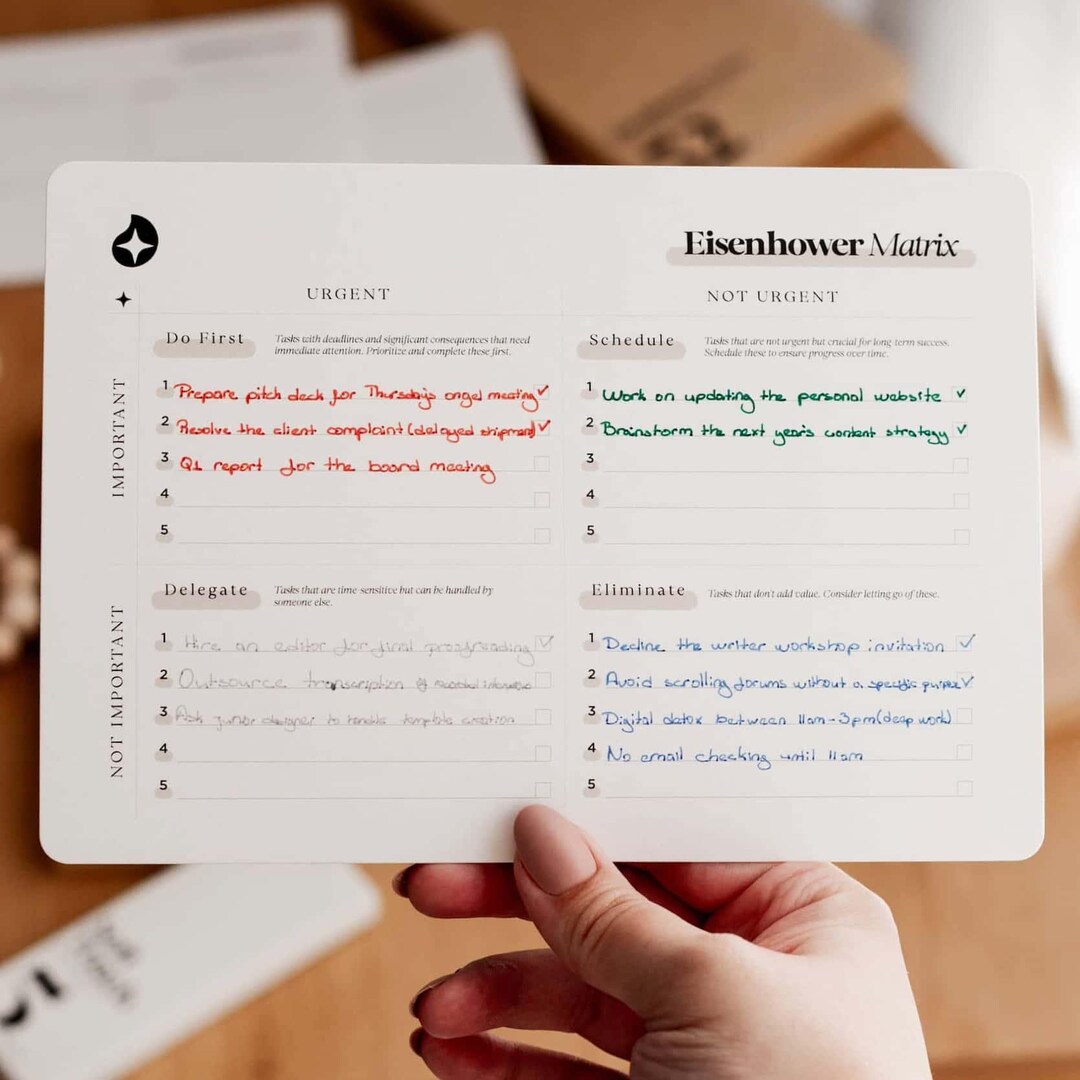 Eisenhower Matrix
URGENT
NOT URGENT
IMPORTANT
Do First
Tasks with deadlines and significant consequences that need
immediate attention. Prioritize and complete these first.
1 Prepare pitch deck for Thursday's angel meeting
2 Resolve the client complaint (delayed shipment)
3 Q1 report for the board meeting
4
5
Schedule
Tasks that are not urgent but crucial for long-term success.
Schedule these to ensure progress over time.
1 Work on updating the personal website
2 Brainstorm the next year's content strategy
3
4
5
NOT IMPORTANT
Delegate
Tasks that are time-sensitive but can be handled by
someone else.
1 Hire an editor for final proofreading
2 Outsource transcription of recorded interviews
3 Ask junior designer to handle template creation
4
5
Eliminate
Tasks that don't add value. Consider letting go of these.
1 Decline the writer workshop invitation
2 Avoid scrolling forums without a specific purpose
3 Digital detox between 11am-3pm (deep work)
4 No email checking until 11am
5